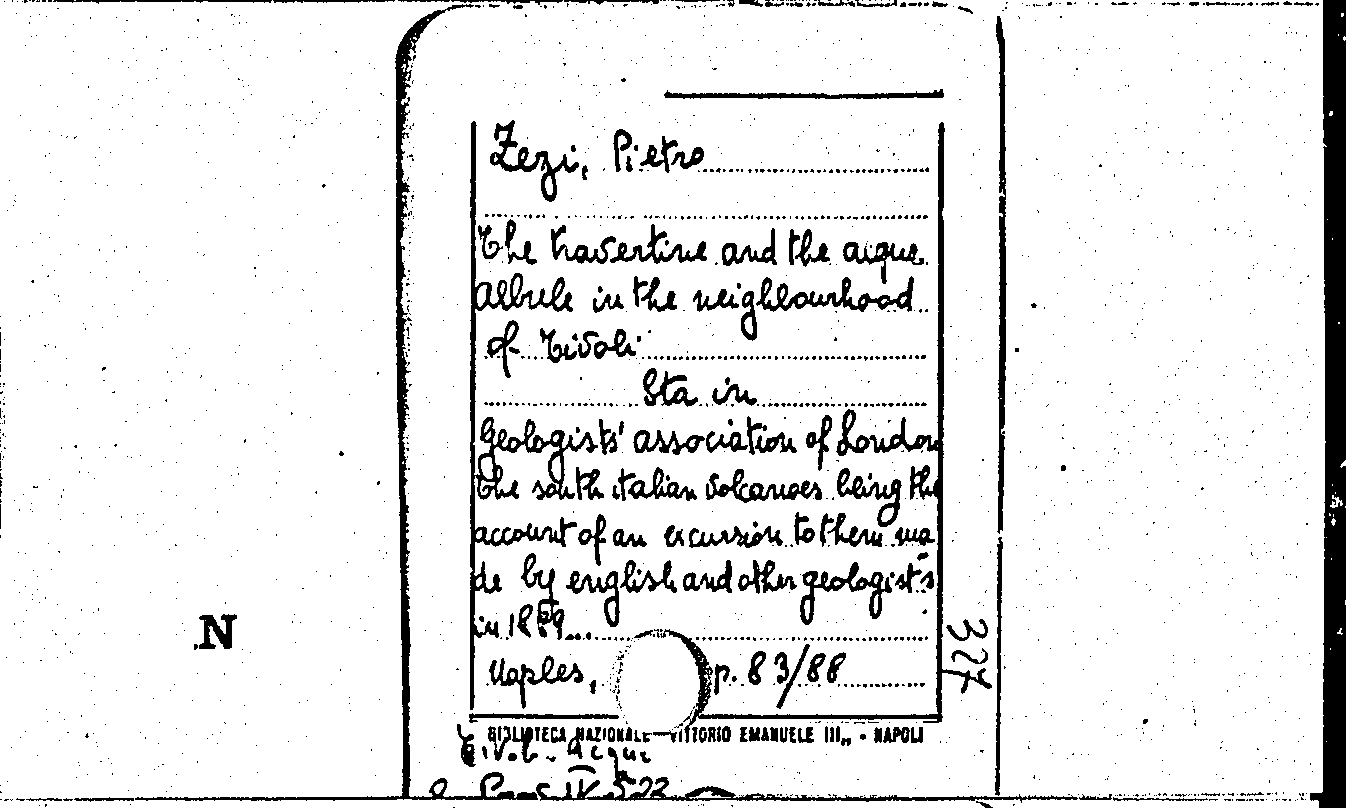 Zezi, Pietro
The travertine and the acque
Albule in the neighbourhood
of Tivoli
Sta in
Geologists' association of London
the south italian volcanoes being the
account of an excursion to them ma
de by english and other geologists
in 1889...
Naples, p. 83/88
327
N
BIBLIOTECA NAZIONALE VITTORIO EMANUELE III„ - NAPOLI
Tivoli - Acque
IV